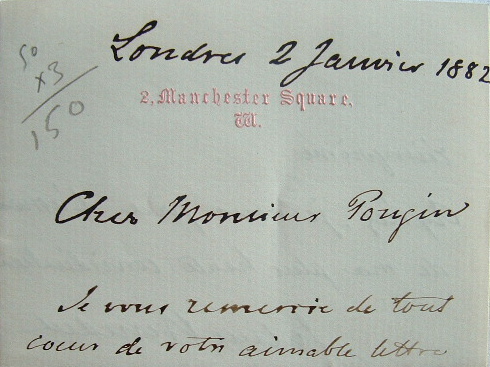 Londres 2 Janvier 1882
50
x3
150
2, Manchester Square,
W.
Cher Monsieur Pougin
Je vous remercie de tout
coeur de votre aimable lettre